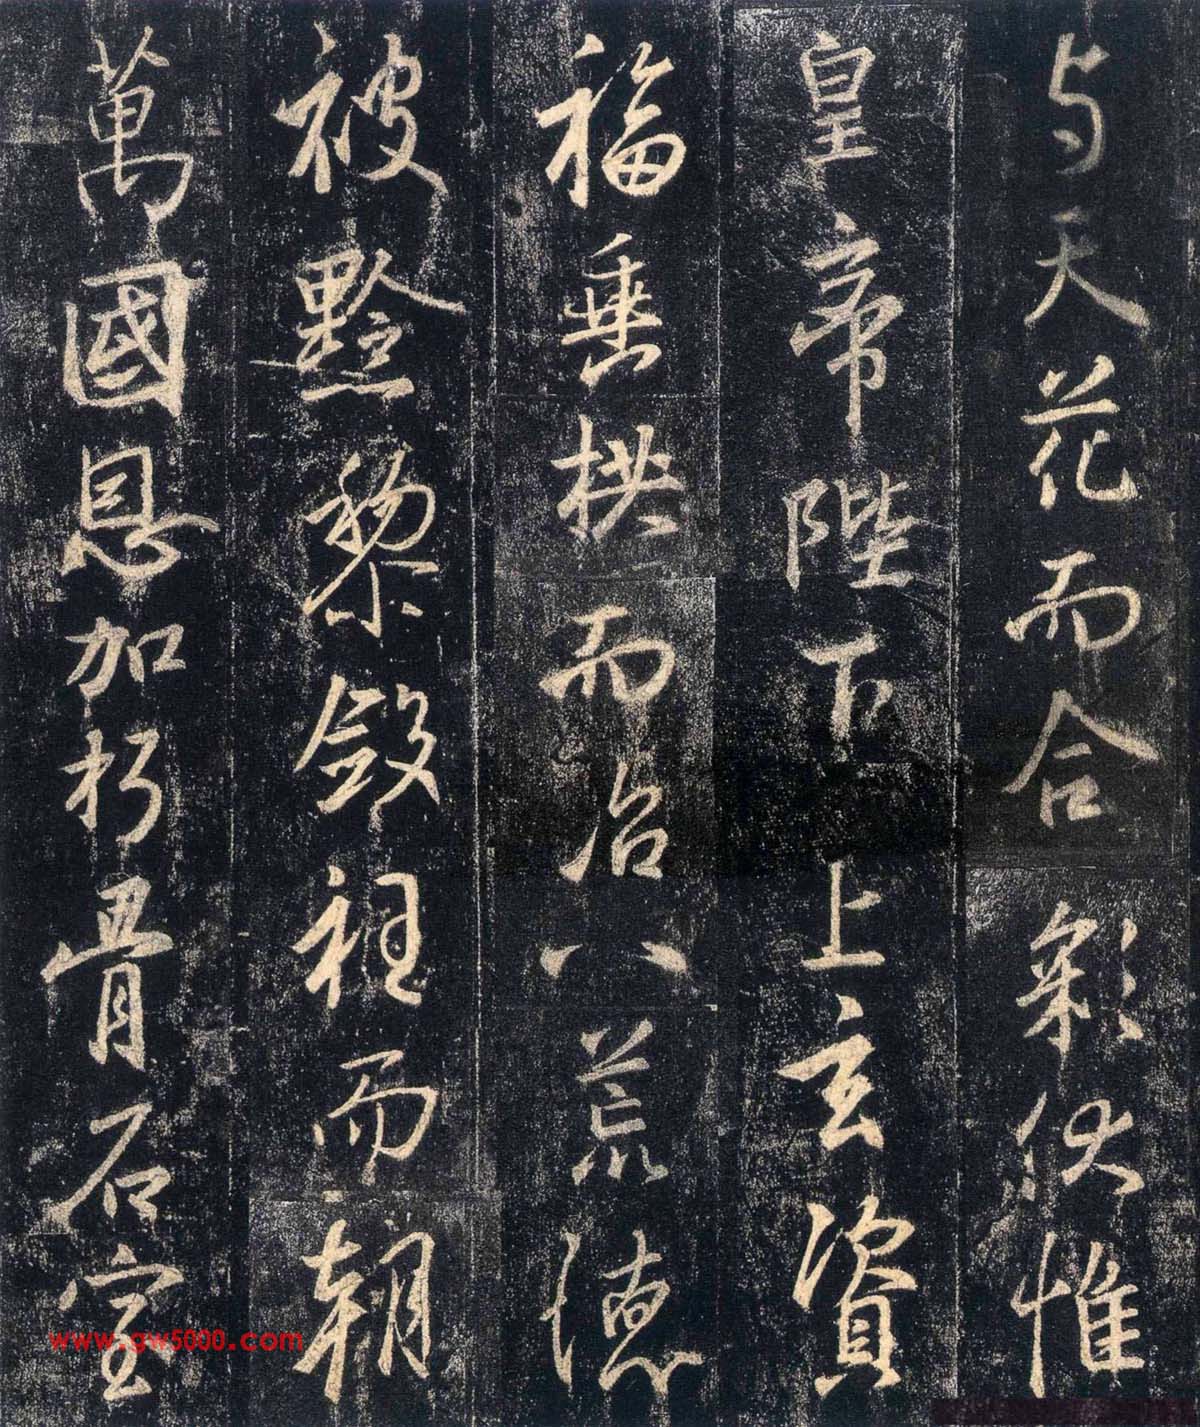 与天花而合彩伏惟
皇帝陛下上玄資
福垂拱而治八荒德
被黔黎斂衽而朝
萬國恩加朽骨石室
www.gw5000.com